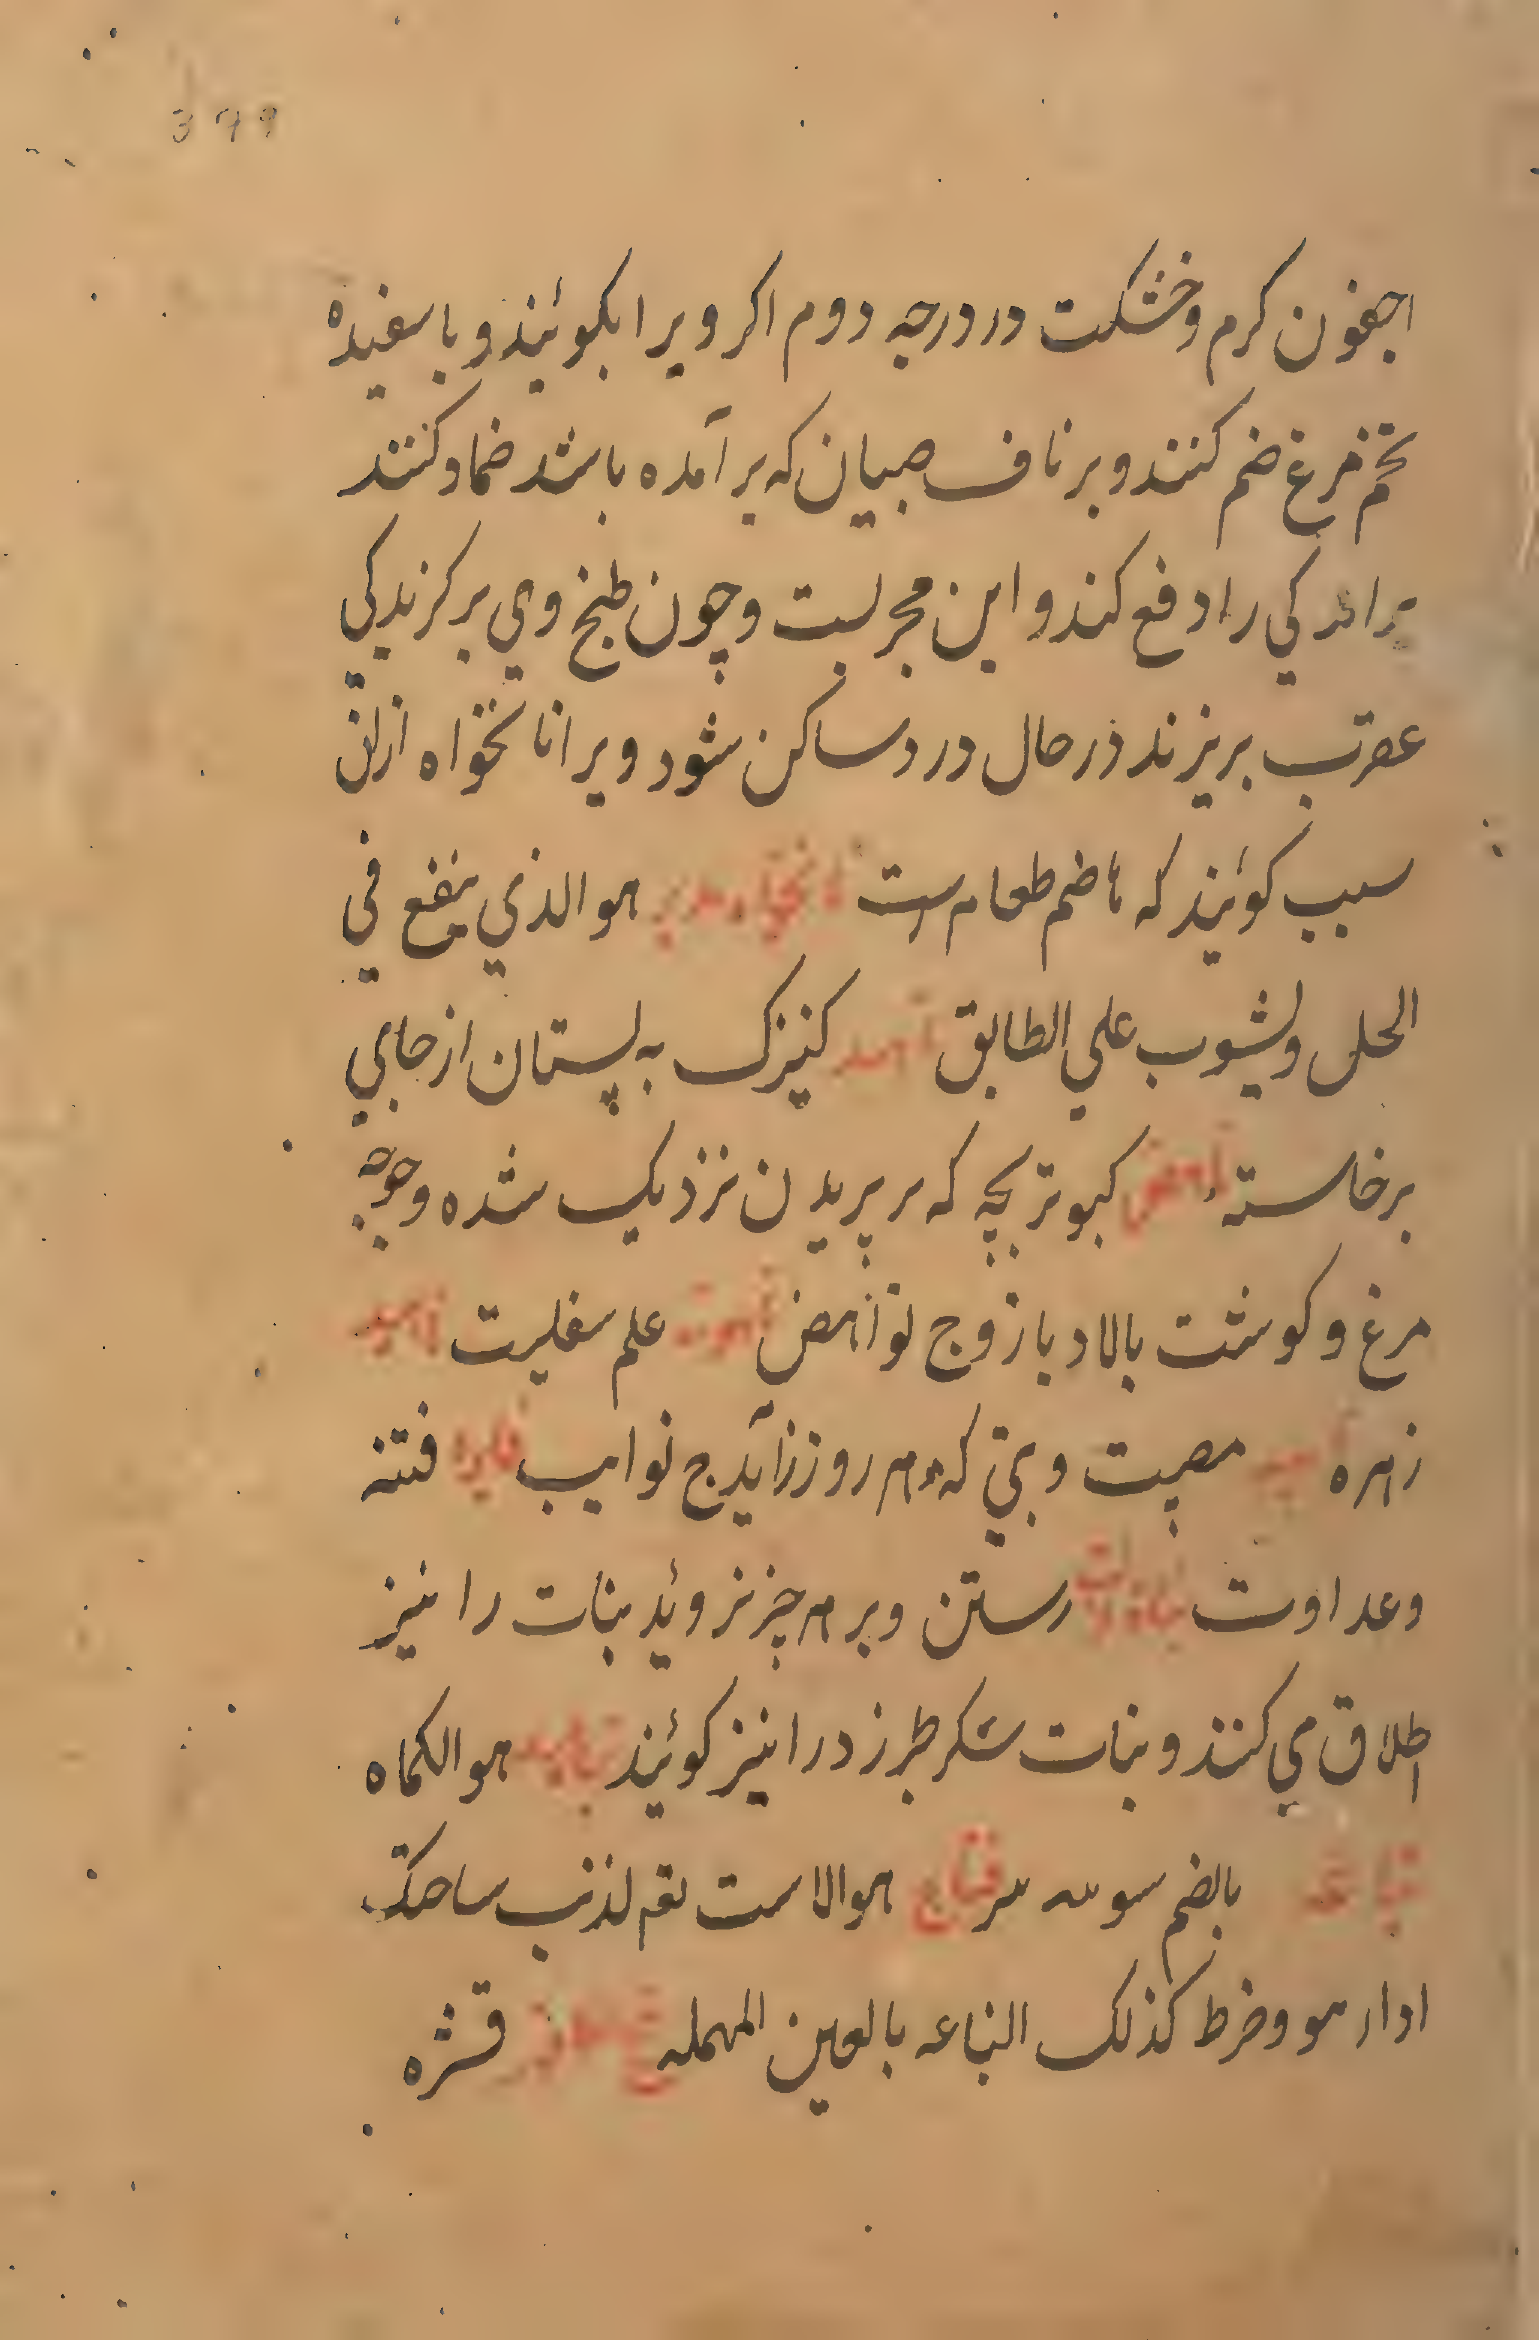 379
اجغون کرم وخشکت در درجه دوم اکر ویرا بکوئیند و با سفیده
تخم مرغ ضم کنند و بر ناف صبیان که بر آمده باشد ضماد کنند
کی را دفع کند و این مجربست و چون طبخ وي بر کزیدکي
عقرب بریزند در حال درد ساکن شود ویرا نانخواه ازان
سبب کوئیند که هاضم طعام است هو الذي ینفع في
الحل ویشوب علي الطابق کنیزک به پستان از جاي
برخاسته ناهض کبوتر بچه که بر پریدن نزدیک شده وجوجه
مرغ و کوشت بالاد بازو ج نواهض علم سفلیت
زهره مصیبت و تبي که هر روز آید ج نوایب فتنه
وعداوت رستن و بر هر چیز نروید نبات را نیز
اطلاق مي کنند و نبات شکر طبرزد را نیز کوئیند هو الکماه
بالضم هو الاست نعم لذنب ساحک
ادا هو وضرط کذلک النباعه بالعین المهمله قشره